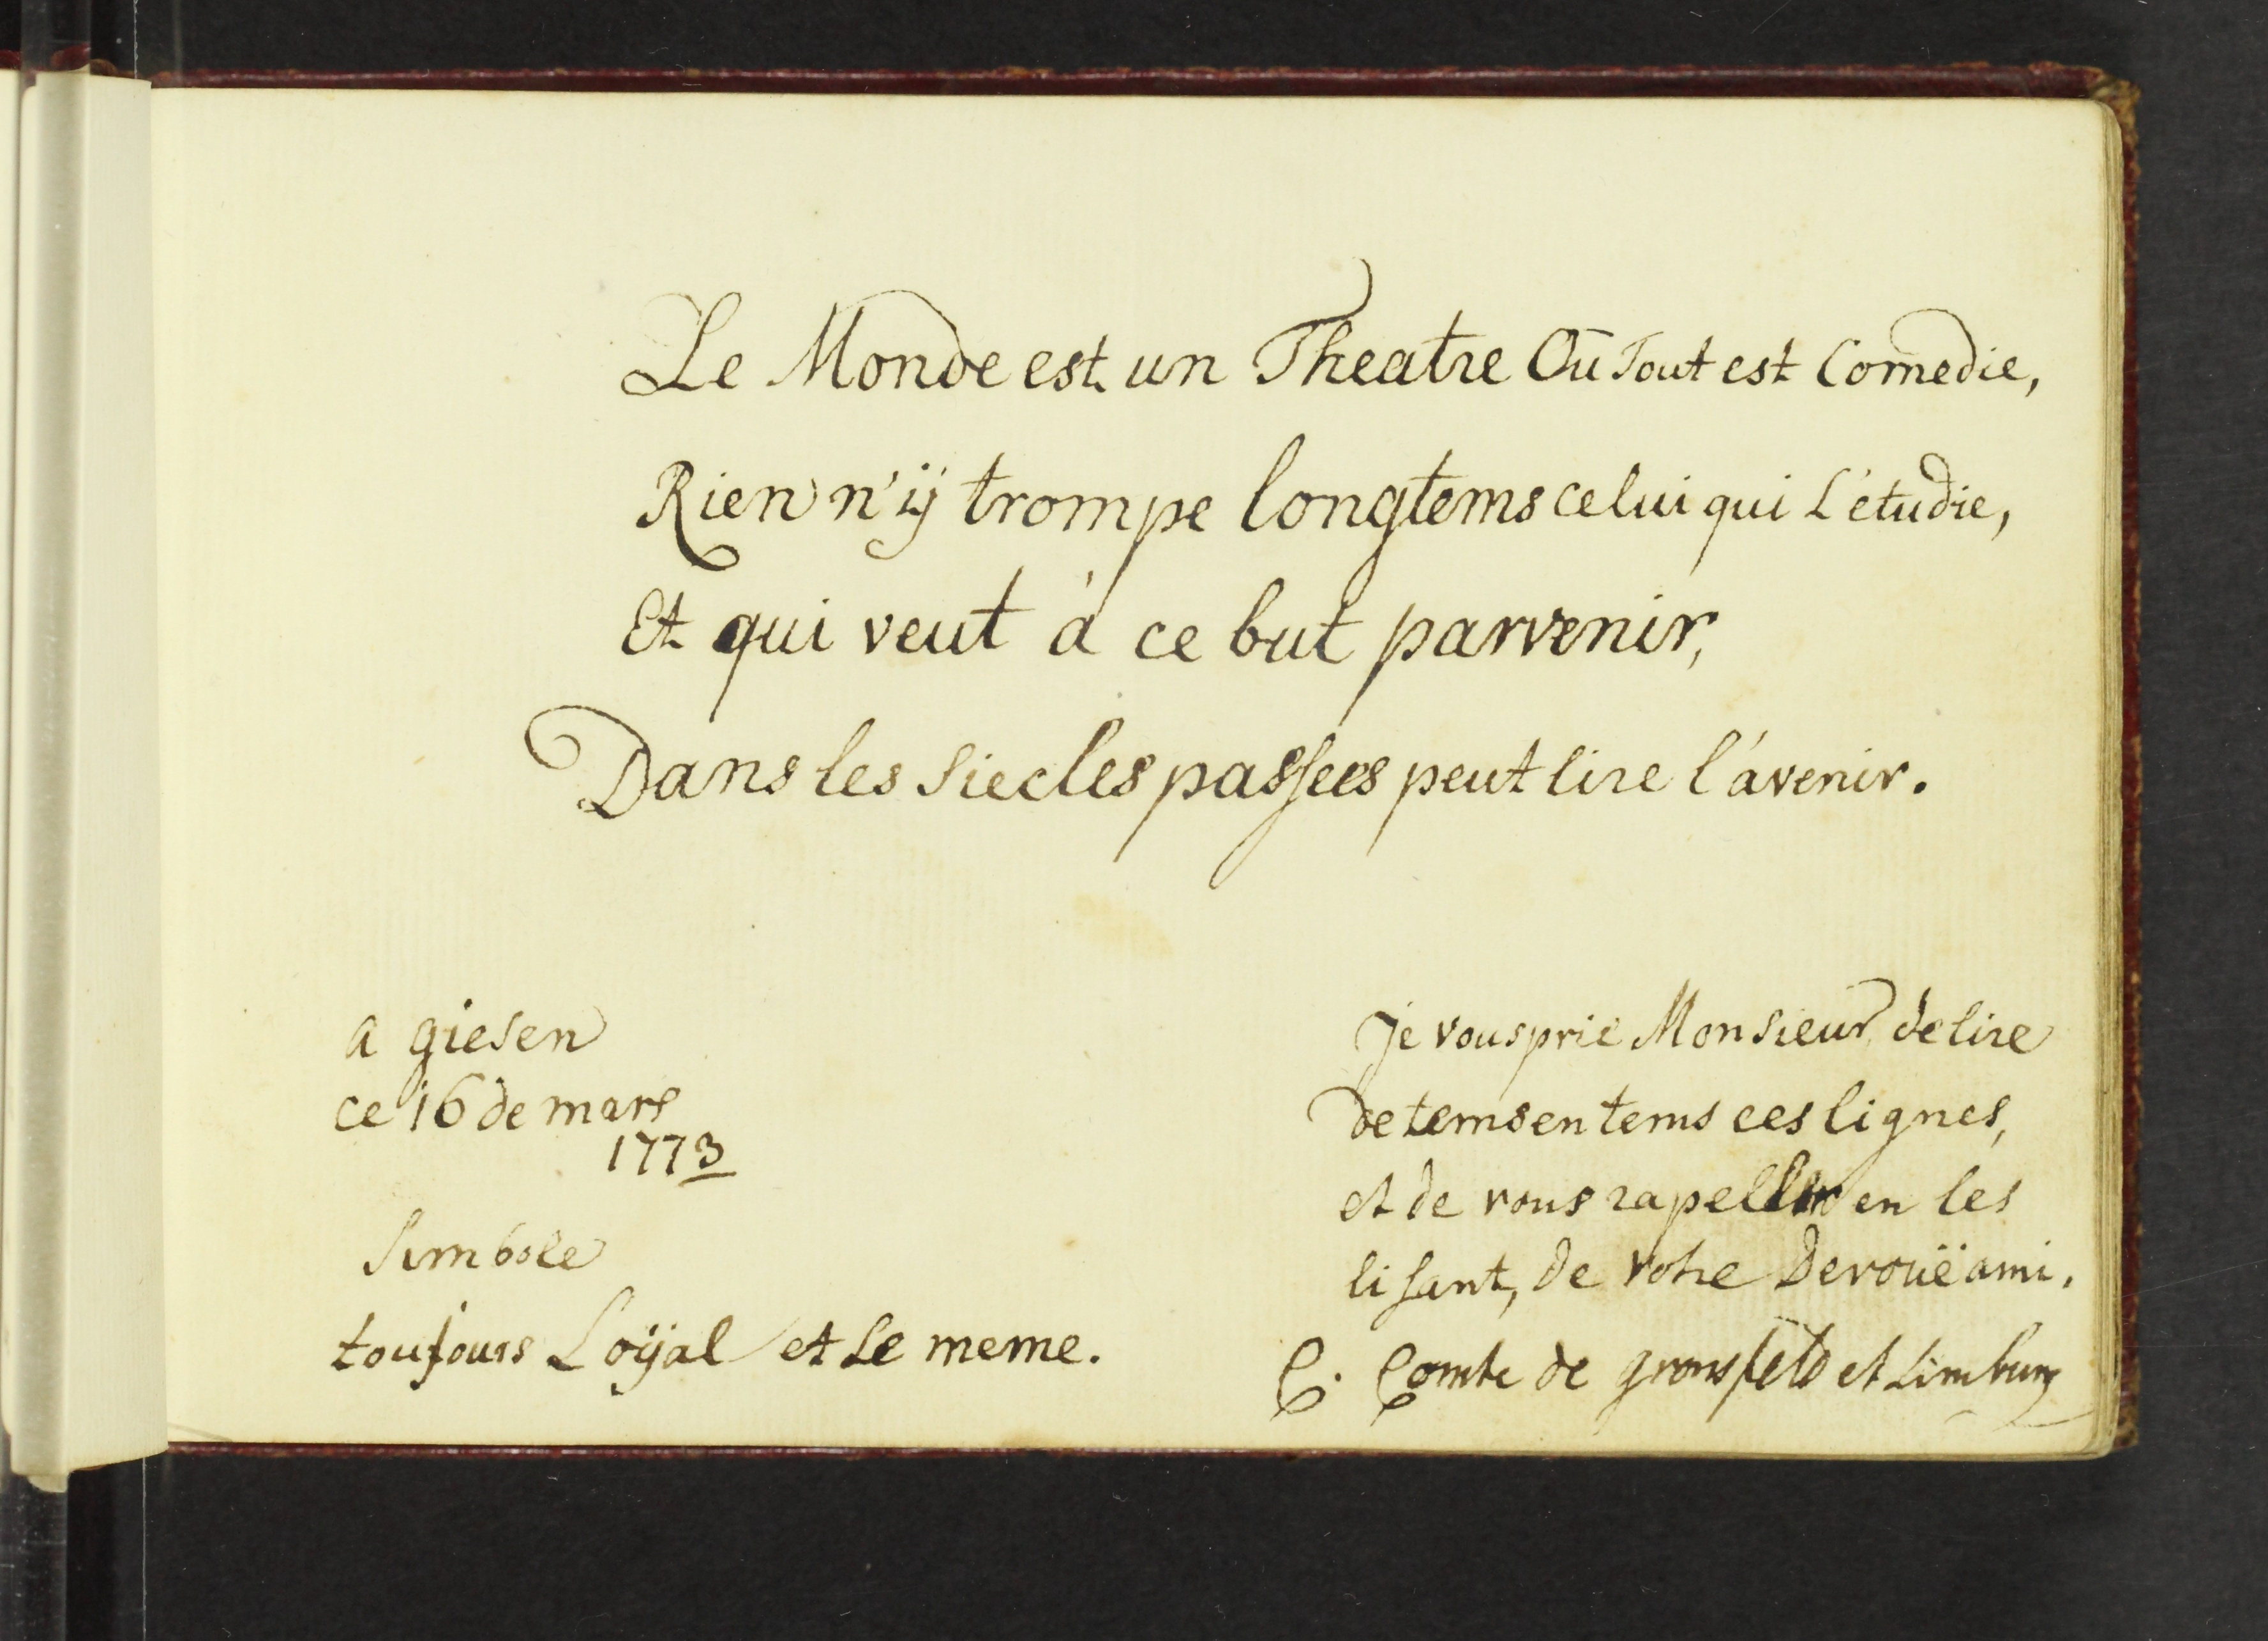 Le Monde est un Theatre Ou Tout est Comedie,
Rien n'ÿ trompe longtems celui qui L'etudie,
Et qui veut à ce but parvenir,
Dans les Siecles passees peut lire l'avenir.
a giesen
ce 16 de mars
1773
Simbole
toujours Loÿal et Le meme.
Je vous prie Monsieur de lire
de tems en tems ces lignes,
et de vous rapeller en les
lisant, de votre Devouë ami.
C. Comte de gronsfeld et Limburg